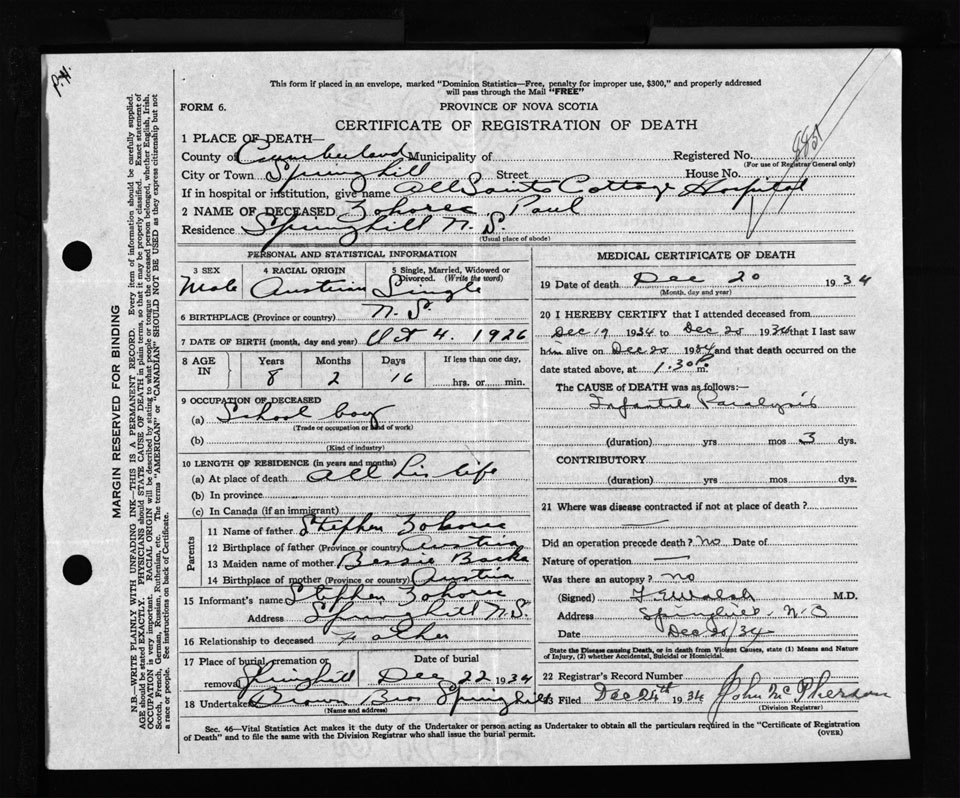 P.H.
This form if placed in an envelope, marked "Dominion Statistics—Free, penalty for improper use, $300," and properly addressed
will pass through the Mail "FREE"
FORM 6.
PROVINCE OF NOVA SCOTIA
CERTIFICATE OF REGISTRATION OF DEATH
1 PLACE OF DEATH—
County of Cumberland Municipality of Registered No.
(For use of Registrar General only)
City or Town Springhill Street House No.
If in hospital or institution, give name All Saints Cottage Hospital
2 NAME OF DECEASED Zoharec Paul
Residence Springhill N.S.
(Usual place of abode)
PERSONAL AND STATISTICAL INFORMATION
3 SEX 4 RACIAL ORIGIN 5 Single, Married, Widowed or
Divorced. (Write the word)
Male Austrian Single
6 BIRTHPLACE (Province or country) N.S.
7 DATE OF BIRTH (month, day and year) Oct 4. 1926
8 AGE IN Years Months Days If less than one day,
8 2 16 hrs. or min.
9 OCCUPATION OF DECEASED
(a) School boy
(Trade or occupation or kind of work)
(b)
(Kind of industry)
10 LENGTH OF RESIDENCE (in years and months)
(a) At place of death all his life
(b) In province
(c) In Canada (if an immigrant)
Parents
11 Name of father Stephen Zoharec
12 Birthplace of father (Province or country) Austria
13 Maiden name of mother Bessie Backa
14 Birthplace of mother (Province or country) Austria
15 Informant's name Stephen Zoharec
Address Springhill N.S.
16 Relationship to deceased father
17 Place of burial, cremation or Date of burial
removal Springhill Dec 22 1934
18 Undertaker Brown Bros Springhill
(Name and address)
MEDICAL CERTIFICATE OF DEATH
19 Date of death Dec 20 1934
(Month, day and year)
20 I HEREBY CERTIFY that I attended deceased from
Dec 19 1934 to Dec 20 1934 that I last saw
him alive on Dec 20 1934 and that death occurred on the
date stated above, at 1.30 P. m.
The CAUSE of DEATH was as follows:—
Infantile Paralysis
(duration) yrs mos 3 dys.
CONTRIBUTORY
(duration) yrs mos dys.
21 Where was disease contracted if not at place of death?
Did an operation precede death? no Date of
Nature of operation
Was there an autopsy? no
(Signed) Walsh M.D.
Address Springhill N.S
Date Dec 20/34
State the Disease causing Death, or in death from Violent Causes, state (1) Means and Nature
of Injury, (2) whether Accidental, Suicidal or Homicidal.
22 Registrar's Record Number
23 Filed Dec 24th 1934 John McPherson
(Division Registrar)
Sec. 46—Vital Statistics Act makes it the duty of the Undertaker or person acting as Undertaker to obtain all the particulars required in the "Certificate of Registration
of Death" and to file the same with the Division Registrar who shall issue the burial permit. (OVER)
MARGIN RESERVED FOR BINDING
N.B.—WRITE PLAINLY WITH UNFADING INK—THIS IS A PERMANENT RECORD. Every item of information should be carefully supplied.
AGE should be stated EXACTLY. PHYSICIANS should STATE CAUSE OF DEATH in plain terms, so that it may be properly classified. Exact statement of
OCCUPATION is very important. RACIAL ORIGIN will be described by stating to what people or tongue the deceased person belonged, whether English, Irish,
Scotch, French, German, Russian, Ruthenian, etc. The terms "AMERICAN" or "CANADIAN" SHOULD NOT BE USED as they express citizenship but not
a race or people. See instructions on back of Certificate.